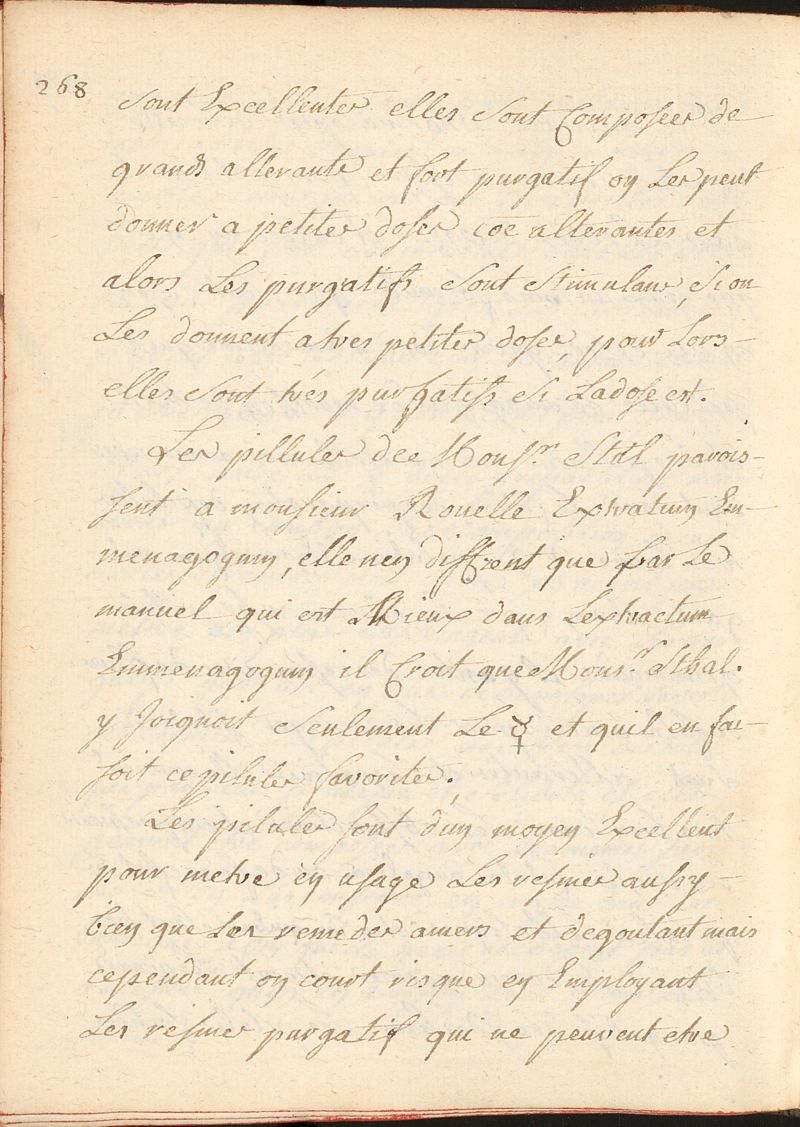 268
sont Excellentes elles sont Composées de
grands alterants et sont purgatif on Les peut
donner a petites doses coe alterantes et
alors Les purgatifs sont stimulans, si on
Les donnent a tres petites doses, pour Lors
elles sont trés purgatifs si La dose est.
Les pillules dee Monsr. Stal parois-
sent a monsieur Rouelle Extratum Em-
menagogum, elle nen diffrent que par Le
manuel qui est Mieux dans Lextractum
Emmenagogum il Croit que Monsr. Sthal.
y Joignoit seulement Le ☿ et quil en fai-
soit ce pilules favorites.
Les pilules sont d'un moyen Excellent
pour metre en usage Les resines aussy
bien que Les remedes amers et degoutant mais
cependant on court risque en Employant
Les resines purgatif qui ne peuvent etre